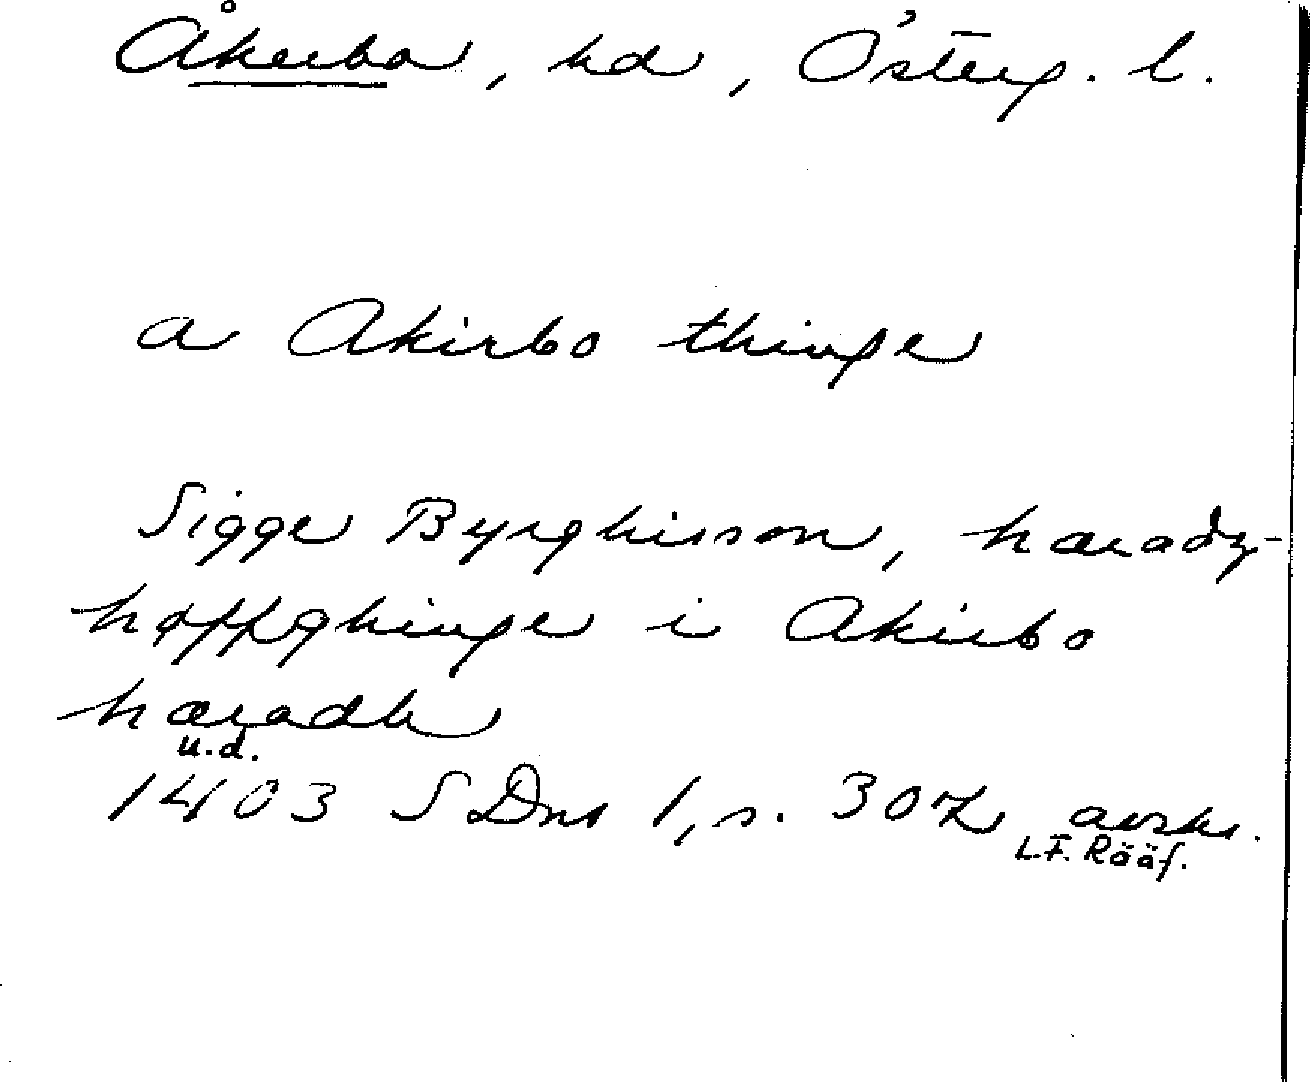 Åkerbo, hd, Österg. l.
a Akirbo thinge
Sigge Byrghisson, hæradz-
høffghinge i Akirbo
hæradh
u.d.
1403 SDns 1, s. 307 avskr.
L.F. Rääf.